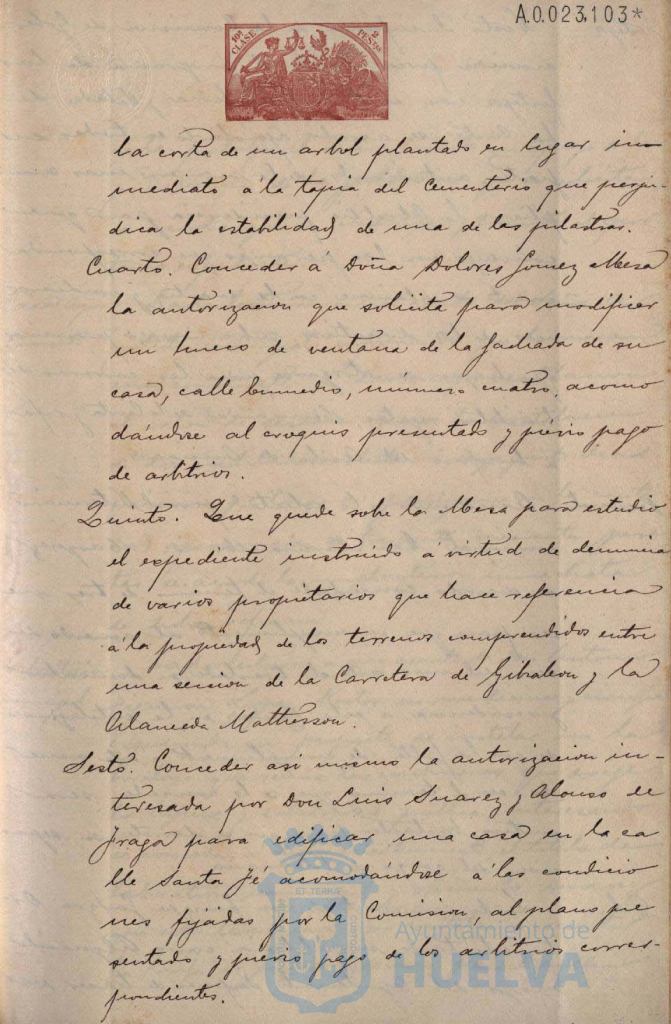 A.0.023,103*
10ª CLASE 2 PESETAS
la corta de un arbol plantado en lugar in-
mediato á la tapia del Cementerio que perju-
dica la estabilidad de una de las pilastras.
Cuarto. Conceder á Doña Dolores Gomez Mesa
la autorizacion que solicita para modificar
un hueco de ventana de la fachada de su
casa, calle Enmedio, número cuatro, acomo
dándose al croquis presentado y prévio pago
de arbitrios.
Quinto. Que quede sobre la Mesa para estudio
el expediente instruido á virtud de denuncia
de varios propietarios que hace referencia
á la propiedad de los terrenos comprendidos entre
una seccion de la Carretera de Gibraleon y la
Alameda Mathesson.
Sesto. Conceder asi mismo la autorizacion in-
teresada por Don Luis Suarez y Alonso de
Fraga para edificar una casa en la ca
lle Santa Fé acomodándose á las condicio
nes fijadas por la Comision, al plano pre
sentado y prévio pago de los arbitrios corres-
pondientes.
Ayuntamiento de
HUELVA